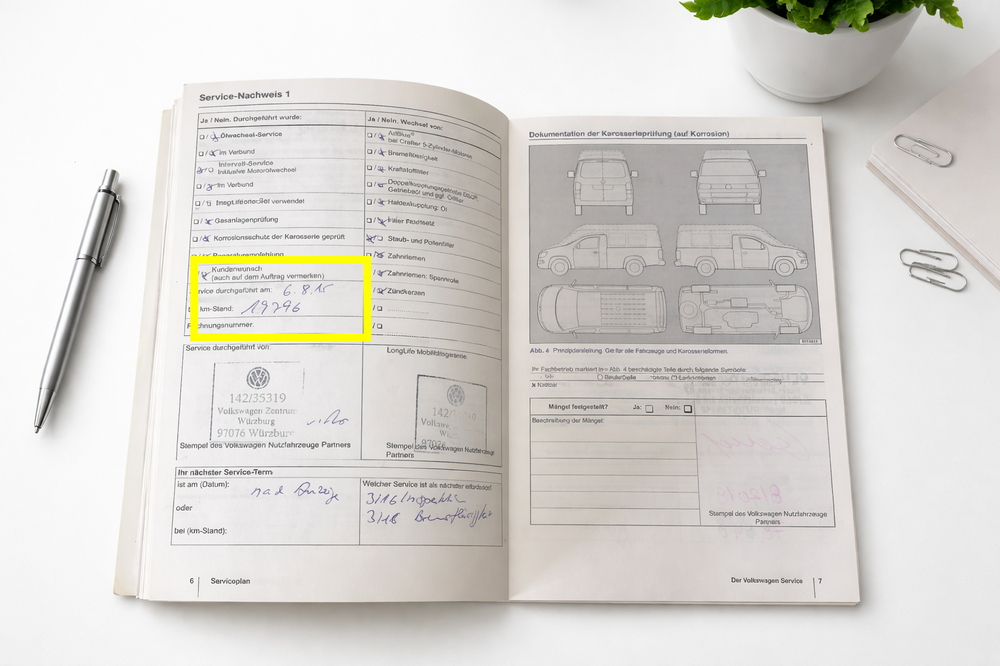 Service-Nachweis 1
Ja / Nein. Durchgeführt wurde:
Ölwechsel-Service
im Verbund
Intervall-Service
Inklusive Motorölwechsel
im Verbund
verwendet
Gasanlagenprüfung
Korrosionsschutz der Karosserie geprüft
Reparaturempfehlung
Kundenwunsch
(auch auf dem Auftrag vermerken)
durchgeführt am: 6.8.15
km-Stand: 19796
Ja / Nein. Wechsel von:
AdBlue®
bei Crafter 5-Zylinder-Motoren
Bremsflüssigkeit
Kraftstofffilter
Staub- und Pollenfilter
Zahnriemen
Zahnriemen: Spannrolle
Zündkerzen
Service durchgeführt von:
LongLife Mobilitätsgarantie
142/35319
Volkswagen Zentrum
Würzburg
97076 Würzburg
Stempel des Volkswagen Nutzfahrzeuge Partners
142/
Volkswa
97076
Stempel des Volkswagen Nutzfahrzeuge
Partners
Ihr nächster Service-Term
ist am (Datum): nach Anzeige
oder
bei (km-Stand):
Welcher Service ist als nächster erforderl
3/16 Inspektion
3/18 Bremsflüssigkeit
6 Serviceplan
Dokumentation der Karosserieprüfung (auf Korrosion)
Abb. 4 Prinzipdarstellung. Gilt für alle Fahrzeuge und Karosserieformen.
Ihr Fachbetrieb markiert in Abb. 4 beschädigte Teile durch folgende Symbole:
Mängel festgestellt? Ja: Nein:
Beschreibung der Mängel:
Stempel des Volkswagen Nutzfahrzeuge
Partners
Der Volkswagen Service 7